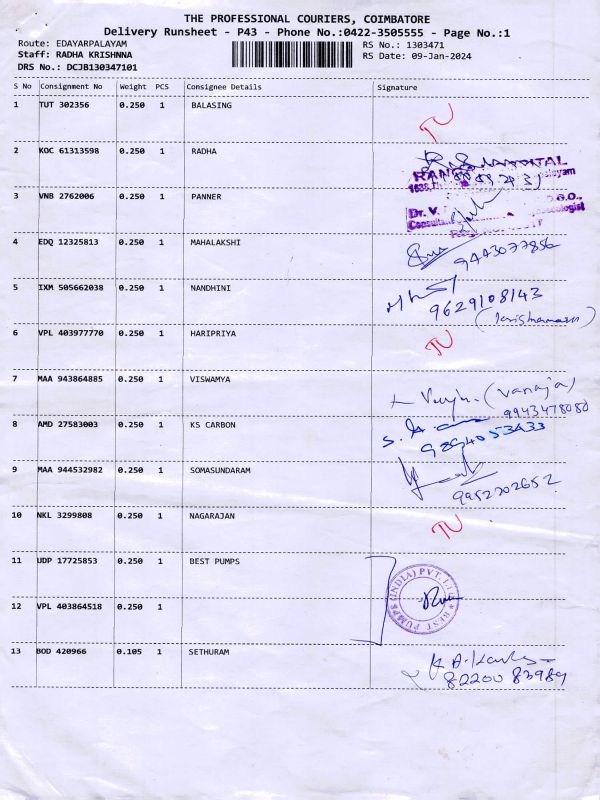 THE PROFESSIONAL COURIERS, COIMBATORE
Delivery Runsheet - P43 - Phone No.:0422-3505555 - Page No.:1
Route: EDAYARPALAYAM RS No.: 1303471
Staff: RADHA KRISHNNA RS Date: 09-Jan-2024
DRS No.: DCJB130347101
S No Consignment No Weight PCS Consignee Details Signature
1 TUT 302356 0.250 1 BALASING
2 KOC 61313598 0.250 1 RADHA
3 VNB 2762006 0.250 1 PANNER
Dr. V.
4 EDQ 12325813 0.250 1 MAHALAKSHI
9443077856
5 IXM 505662038 0.250 1 NANDHINI
9629108143
6 VPL 403977770 0.250 1 HARIPRIYA
7 MAA 943864885 0.250 1 VISWAMYA
(Vanaja)
9943478080
8 AMD 27583003 0.250 1 KS CARBON
9894053433
9 MAA 944532982 0.250 1 SOMASUNDARAM
9952202652
10 NKL 3299808 0.250 1 NAGARAJAN
11 UDP 17725853 0.250 1 BEST PUMPS
BEST PUMPS (INDIA) PVT. LTD
12 VPL 403864518 0.250 1
13 BOD 420966 0.105 1 SETHURAM
82200 83989